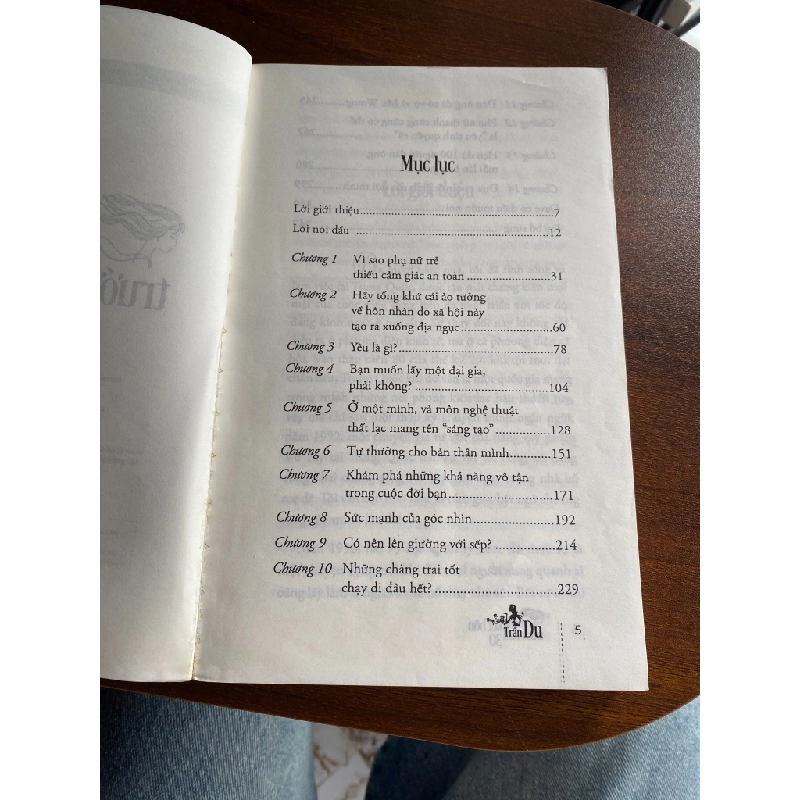 trưở
Mục lục
Lời giới thiệu.....7
Lời nói đầu.....12
Chương 1 Vì sao phụ nữ trẻ
thiếu cảm giác an toàn.....31
Chương 2 Hãy tống khứ cái ảo tưởng
về hôn nhân do xã hội này
tạo ra xuống địa ngục.....60
Chương 3 Yêu là gì?.....78
Chương 4 Bạn muốn lấy một đại gia,
phải không?.....104
Chương 5 Ở một mình, và môn nghệ thuật
thất lạc mang tên "sáng tạo".....128
Chương 6 Tự thưởng cho bản thân mình.....151
Chương 7 Khám phá những khả năng vô tận
trong cuộc đời bạn.....171
Chương 8 Sức mạnh của góc nhìn.....192
Chương 9 Có nên lên giường với sếp?.....214
Chương 10 Những chàng trai tốt
chạy đi đâu hết?.....229
Trần Du
5